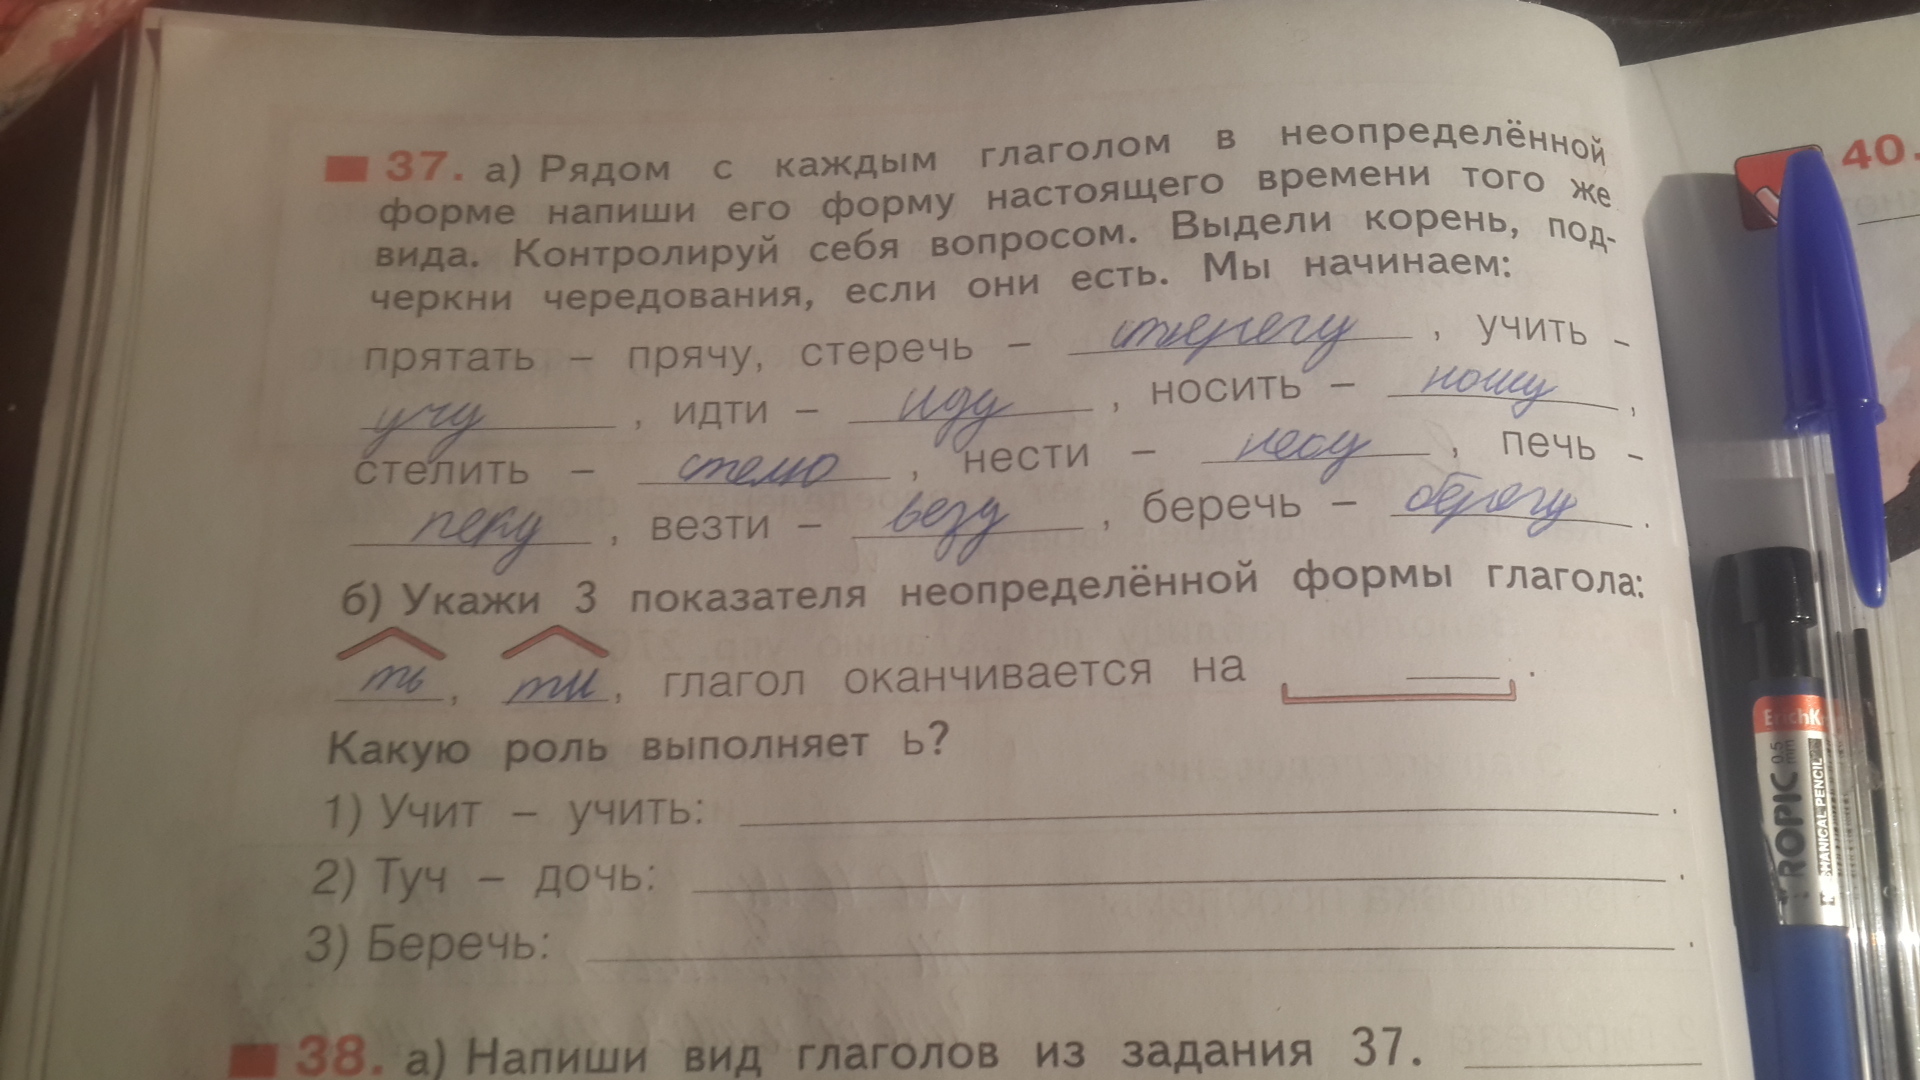 37. а) Рядом с каждым глаголом в неопределённой
форме напиши его форму настоящего времени того же
вида. Контролируй себя вопросом. Выдели корень, под-
черкни чередования, если они есть. Мы начинаем:
прятать – прячу, стеречь – стерегу, учить –
учу, идти – иду, носить – ношу,
стелить – стелю, нести – несу, печь –
пеку, везти – везу, беречь – берегу.
б) Укажи 3 показателя неопределённой формы глагола:
ть, ти, глагол оканчивается на ____.
Какую роль выполняет ь?
1) Учит – учить: ____.
2) Туч – дочь: ____.
3) Беречь: ____.
38. а) Напиши вид глаголов из задания 37. ____
40.
ErichK
TROPIC 0.5 mm
MECHANICAL PENCIL